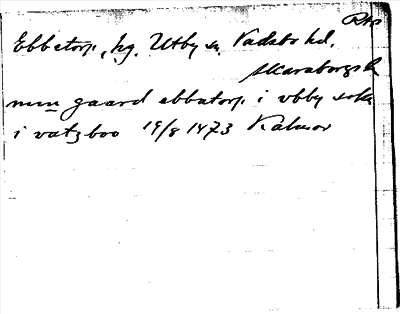 Rap
Ebbetorp, hg. Utby sn Vadsbo hd.
Skaraborgs l
min gaard ebbatorp i vbby sokn
i vatzboo 19/8 1473 Kalmar